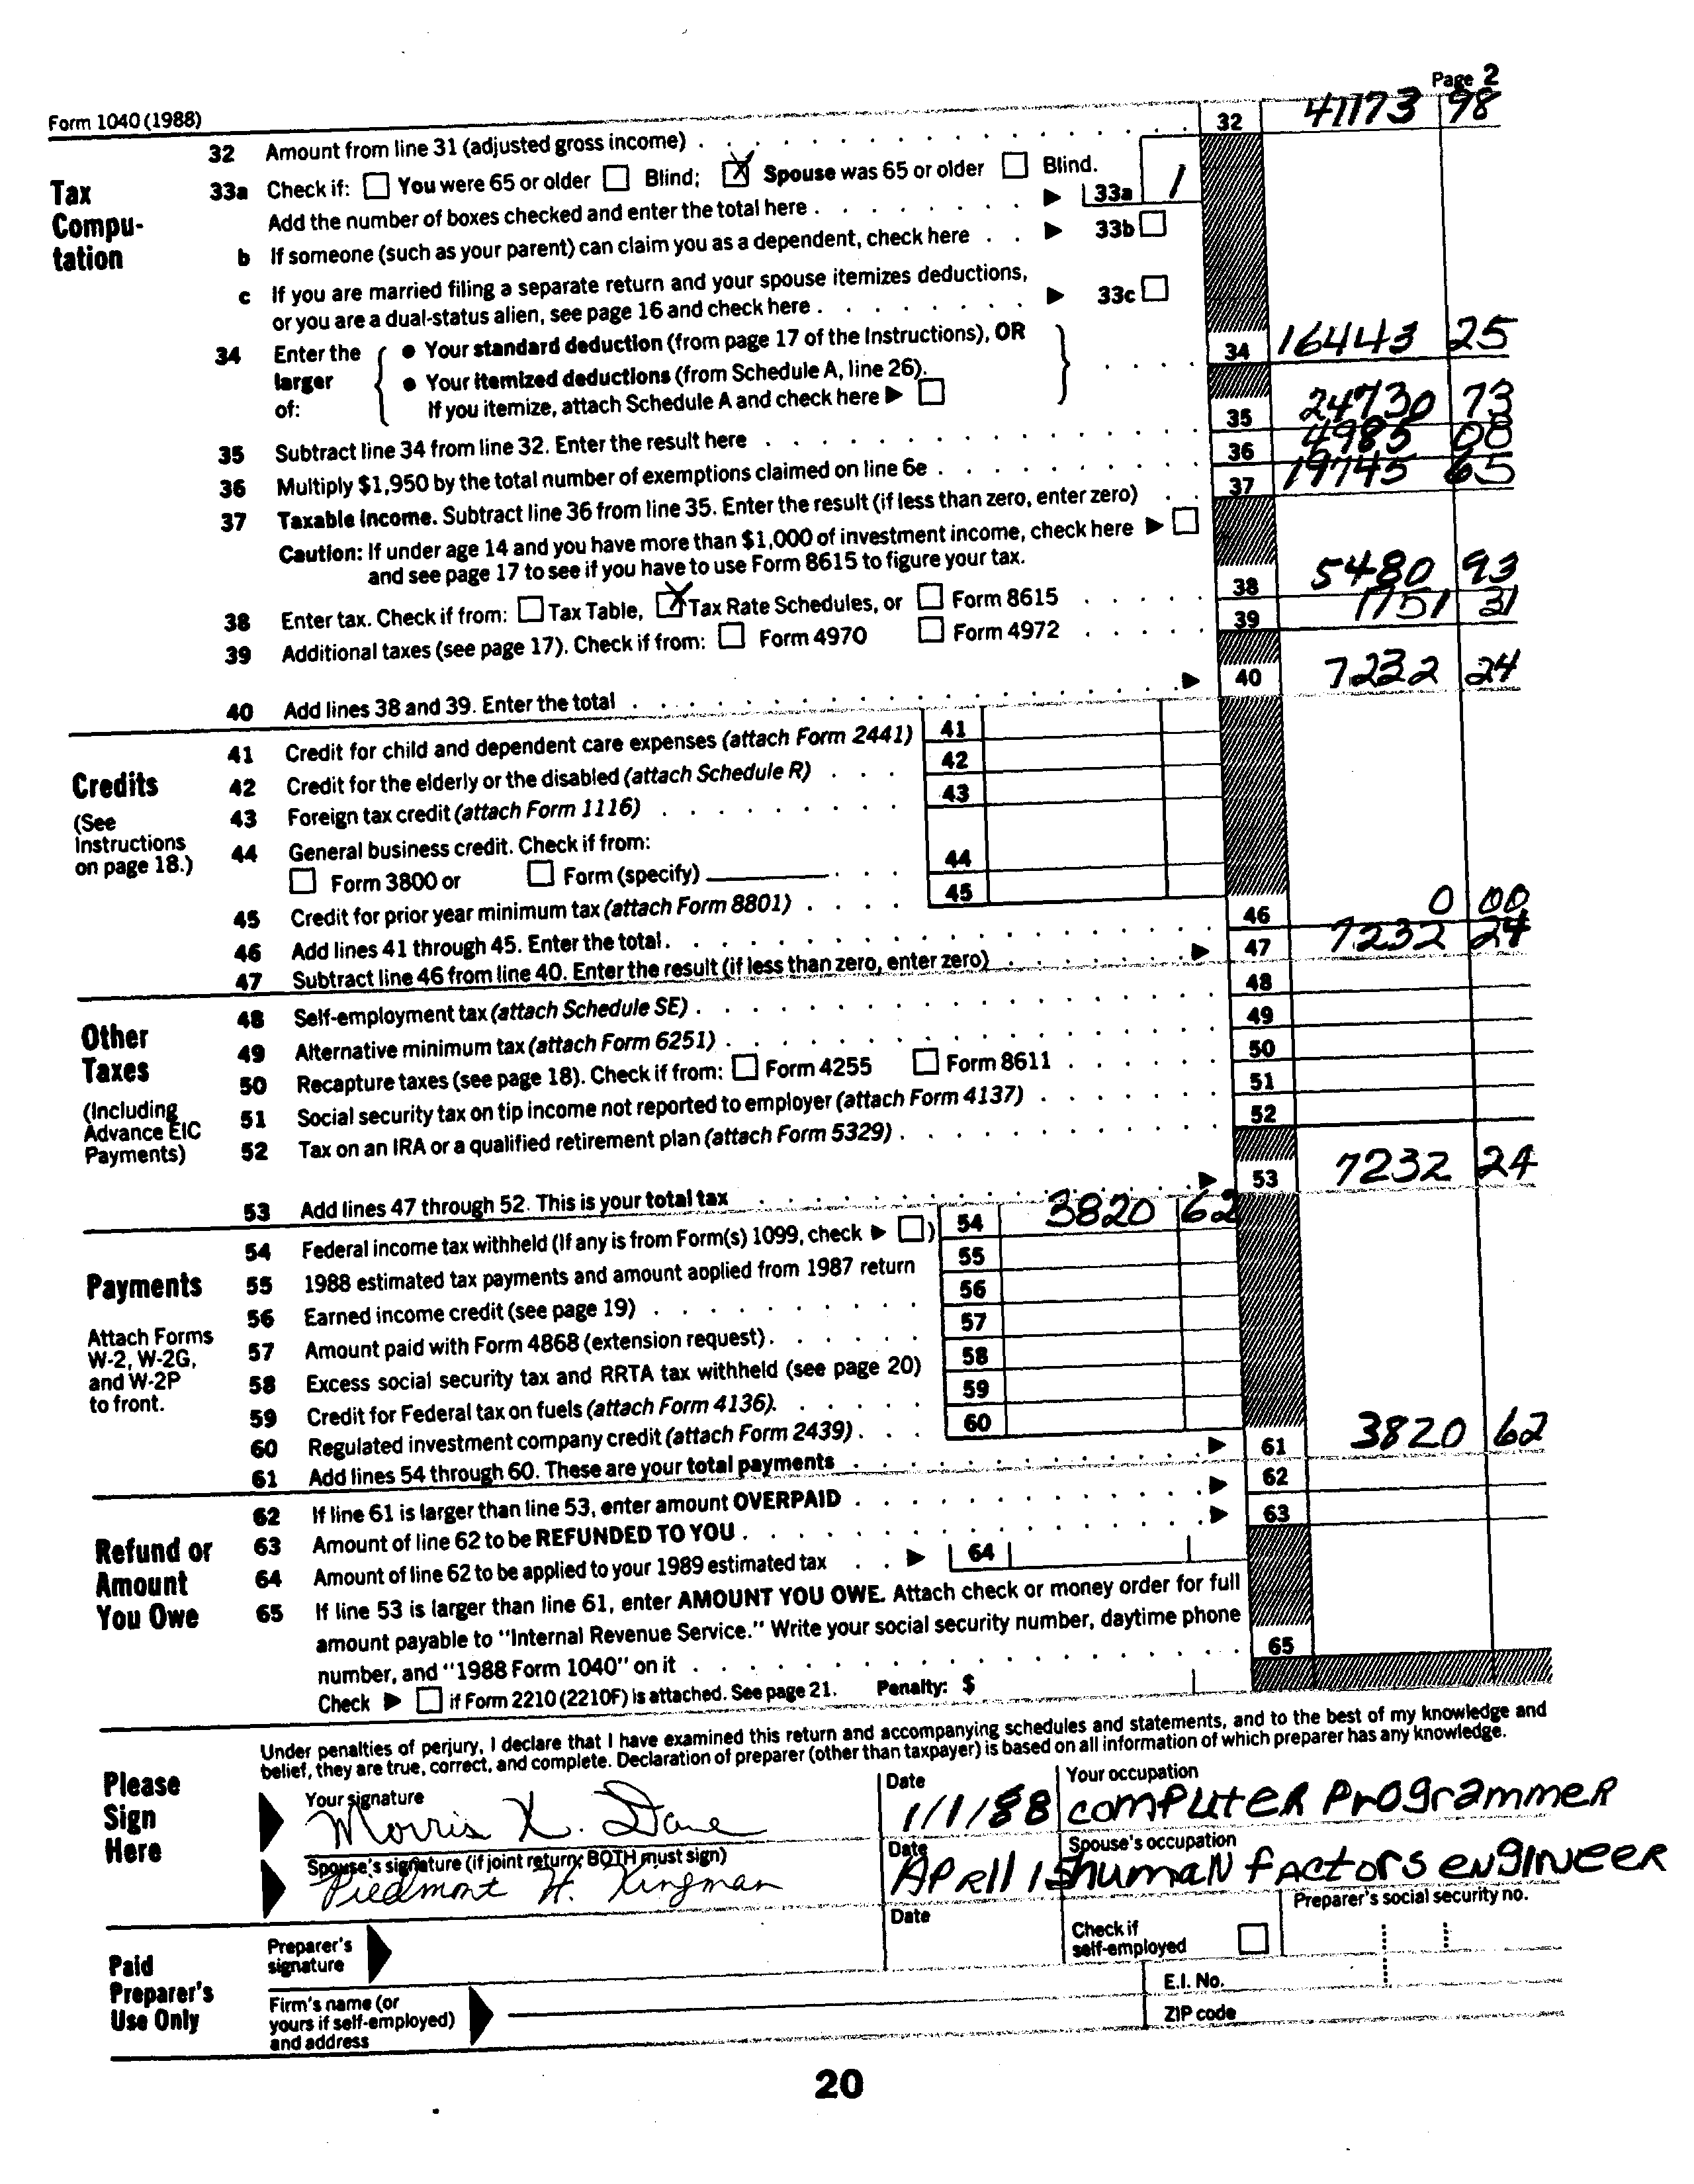 Form 1040 (1988) Page 2
32 Amount from line 31 (adjusted gross income) 32 41173 98
Tax Compu-tation
33a Check if: You were 65 or older Blind; X Spouse was 65 or older Blind.
Add the number of boxes checked and enter the total here 33a 1
b If someone (such as your parent) can claim you as a dependent, check here 33b
c If you are married filing a separate return and your spouse itemizes deductions,
or you are a dual-status alien, see page 16 and check here 33c
34 Enter the larger of: • Your standard deduction (from page 17 of the Instructions), OR 34 16443 25
• Your itemized deductions (from Schedule A, line 26).
If you itemize, attach Schedule A and check here
35 Subtract line 34 from line 32. Enter the result here 35 24730 73
36 Multiply $1,950 by the total number of exemptions claimed on line 6e 36 4985 08
37 Taxable income. Subtract line 36 from line 35. Enter the result (if less than zero, enter zero) 37 19745 65
Caution: If under age 14 and you have more than $1,000 of investment income, check here
and see page 17 to see if you have to use Form 8615 to figure your tax.
38 Enter tax. Check if from: Tax Table, X Tax Rate Schedules, or Form 8615 38 5480 93
39 Additional taxes (see page 17). Check if from: Form 4970 Form 4972 39 1751 31
40 Add lines 38 and 39. Enter the total 40 7232 24
Credits
(See Instructions on page 18.)
41 Credit for child and dependent care expenses (attach Form 2441) 41
42 Credit for the elderly or the disabled (attach Schedule R) 42
43 Foreign tax credit (attach Form 1116) 43
44 General business credit. Check if from:
Form 3800 or Form (specify) 44
45 Credit for prior year minimum tax (attach Form 8801) 45
46 Add lines 41 through 45. Enter the total 46 0 00
47 Subtract line 46 from line 40. Enter the result (if less than zero, enter zero) 47 7232 24
Other Taxes
(Including Advance EIC Payments)
48 Self-employment tax (attach Schedule SE) 48
49 Alternative minimum tax (attach Form 6251) 49
50 Recapture taxes (see page 18). Check if from: Form 4255 Form 8611 50
51 Social security tax on tip income not reported to employer (attach Form 4137) 51
52 Tax on an IRA or a qualified retirement plan (attach Form 5329) 52
53 Add lines 47 through 52. This is your total tax 53 7232 24
Payments
Attach Forms W-2, W-2G, and W-2P to front.
54 Federal income tax withheld (If any is from Form(s) 1099, check ) 54 3820 62
55 1988 estimated tax payments and amount applied from 1987 return 55
56 Earned income credit (see page 19) 56
57 Amount paid with Form 4868 (extension request) 57
58 Excess social security tax and RRTA tax withheld (see page 20) 58
59 Credit for Federal tax on fuels (attach Form 4136) 59
60 Regulated investment company credit (attach Form 2439) 60
61 Add lines 54 through 60. These are your total payments 61 3820 62
Refund or Amount You Owe
62 If line 61 is larger than line 53, enter amount OVERPAID 62
63 Amount of line 62 to be REFUNDED TO YOU 63
64 Amount of line 62 to be applied to your 1989 estimated tax 64
65 If line 53 is larger than line 61, enter AMOUNT YOU OWE. Attach check or money order for full
amount payable to "Internal Revenue Service." Write your social security number, daytime phone
number, and "1988 Form 1040" on it 65
Check if Form 2210 (2210F) is attached. See page 21. Penalty: $
Please Sign Here
Under penalties of perjury, I declare that I have examined this return and accompanying schedules and statements, and to the best of my knowledge and
belief, they are true, correct, and complete. Declaration of preparer (other than taxpayer) is based on all information of which preparer has any knowledge.
Your signature Date Your occupation
Morris X. Dane 1/1/88 computer Programmer
Spouse's signature (if joint return, BOTH must sign) Date Spouse's occupation
Piedmont H. Kingman APRIl 15 human factors engineer
Paid Preparer's Use Only
Preparer's signature Date Check if self-employed Preparer's social security no.
Firm's name (or yours if self-employed) and address E.I. No.
ZIP code
20